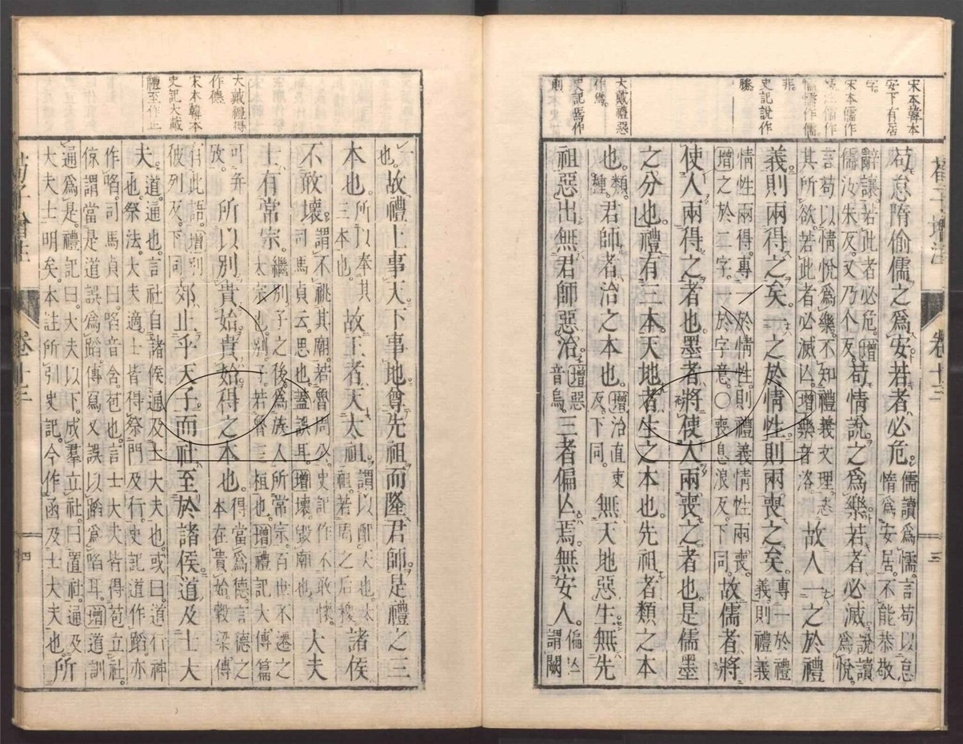 宋本韓本
安下有居
字
宋本儒作
史記說作
勝
大戴禮惡
作焉
史記焉作
則
荀子增注
卷十三
三
苟怠惰偷儒之爲安若者必危。
儒讀爲懦言苟以怠
惰爲安居不能恭敬
辭讓若此者必危。增
儒汝朱反又乃仆反
苟情說之爲樂若者必滅。
說讀
爲悅
言苟以情悅爲樂不知禮義文理恣
其所欲若此者必滅亾。增樂音洛
故人一之於禮
義則兩得之矣一之於情性則兩喪之矣。
專一於禮
義則禮義
情性兩得專一於情性則禮義情性兩喪
增之於二字於字意○喪息浪反下同
故儒者將
使人兩得之者也墨者將使人兩喪之者也是儒墨
之分也禮有三本天地者生之本也先祖者類之本
也。
類
種
君師者治之本也。
增治直吏
反下同
無天地惡生無先
祖惡出無君師惡治。
增惡
音烏
三者偏亾焉無安人。
偏亾
謂闕
大戴禮得
作德
宋本韓本
史記大戴
禮至作止
一
也
故禮上事天下事地尊先祖而隆君師是禮之三
本也。
所以奉其
三本也
故王者天太祖。
謂以配天也太
祖若周之后稷
諸侯
不敢壞。
謂不祧其廟若魯周公史記作不敢懷
司馬貞云思也蓋誤耳增壞毀廟也
大夫
士有常宗。
繼別子之後爲族人所常宗百世不遷之
大宗也別子若魯三桓也增禮記大傳篇
可并
攷
所以別貴始貴始得之本也。
得當爲德言德之
本在貴始穀梁傳
有此語增別
彼列反下同
郊止乎天子而社至於諸侯道及士大
夫。
道通也言社自諸侯通及士大夫也或曰道行神
也祭法大夫適士皆得祭門及行史記道作蹈亦
作啗司馬貞曰啗音含苞也言士大夫皆得苞立社
倞謂當是道誤爲蹈傳寫又誤以蹈爲啗耳增道訓
通爲是禮記曰大夫以下成羣立社曰置社通及
大夫士明矣本註所引史記今作函及士大夫也
所
荀子增注
卷十三
四